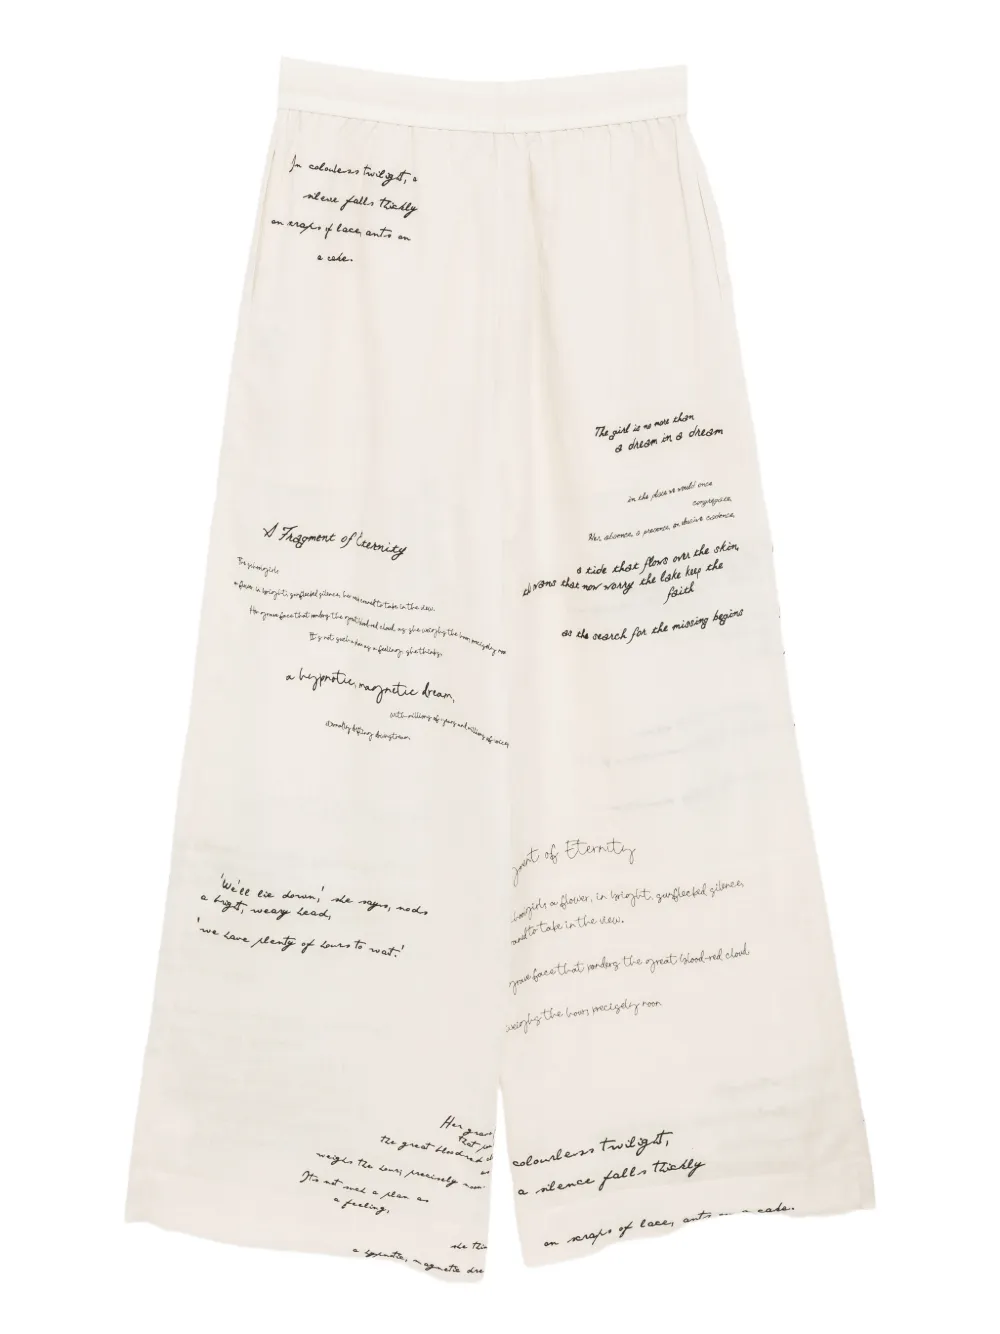 In colourless twilight, a
silence falls thickly
on scraps of lace, ants on
a cake.
The girl is no more than
a dream in a dream
in the place we would once
congregate,
Her absence, a presence, an elusive cadence,
a tide that flows over the skin,
swans that now worry the lake keep the
faith
as the search for the missing begins
A Fragment of Eternity
a flower, in bright, gunflecked silence,
to take in the view.
Her grave face that ponders the great blood-red cloud as she weighs the hour, precisely noon
It's not such a plan as a feeling, she thinks,
a hypnotic, magnetic dream,
with millions of eyes and millions of voices
drifting downstream
'We'll lie down,' she says, nods
a bright, weary head,
'we have plenty of hours to wait.'
ment of Eternity
girls a flower, in bright, gunflecked silence,
and to take in the view.
grave face that ponders the great blood-red cloud
weighs the hour, precisely noon
Her grave
that po
the great bloodred cl
as
weighs the hour, precisely noon
It's not such a plan as
a feeling,
she thin
a hypnotic, magnetic dre
colourless twilight,
a silence falls thickly
on scraps of lace, ants on a cake.